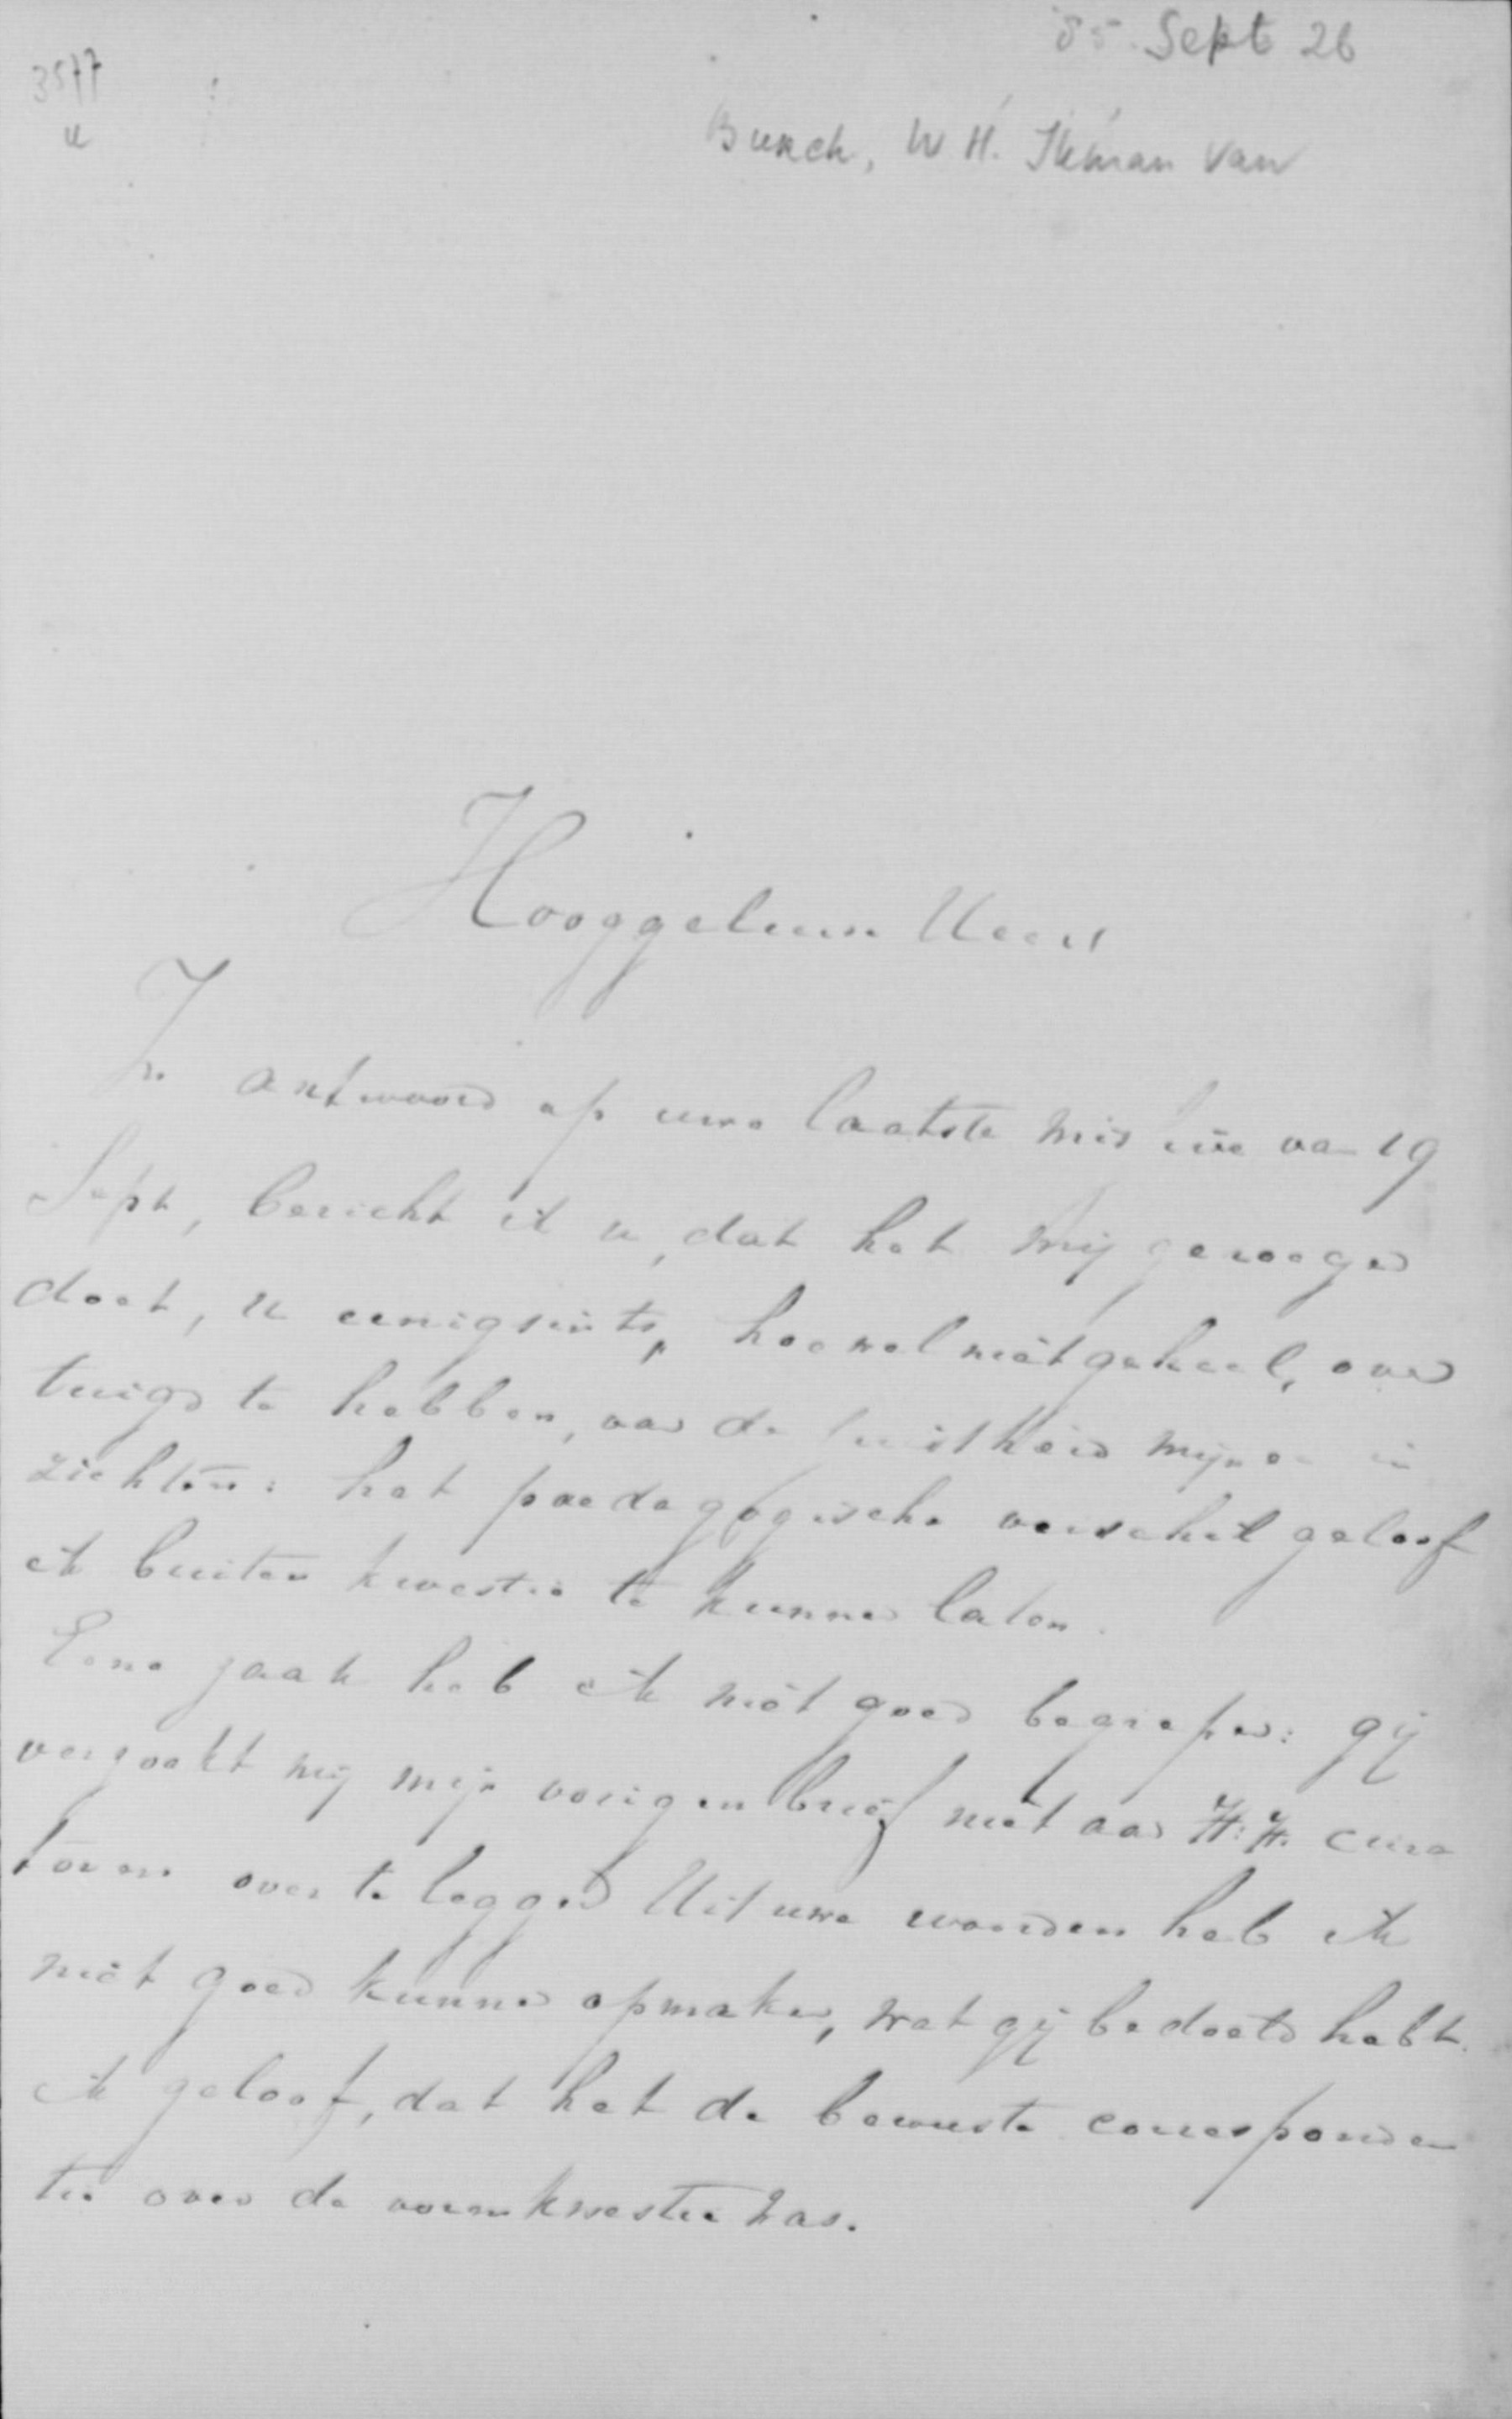 85. Sept 26
3577
u
Burch, W. H. Ikman van
Hooggeleerde Heer
In antwoord op uwe laatste missive van 19
Sept, bericht ik u, dat het mij genoegen
doet, u eenigsints, hoewel niet geheel, over
tuigd te hebben, van de juistheid mijner in
zichten: het paedagogische verschil geloof
ik buiten kwestie te kunnen laten.
Eene zaak heb ik niet goed begrepen: gij
verzoekt mij mijn vorigen brief niet aan H:H: cura
toren over te leggen Uit uwe woorden heb ik
niet goed kunnen opmaken, wat gij bedoeld hebt.
ik geloof, dat het de bewuste corresponden
tie over de kwestie was.